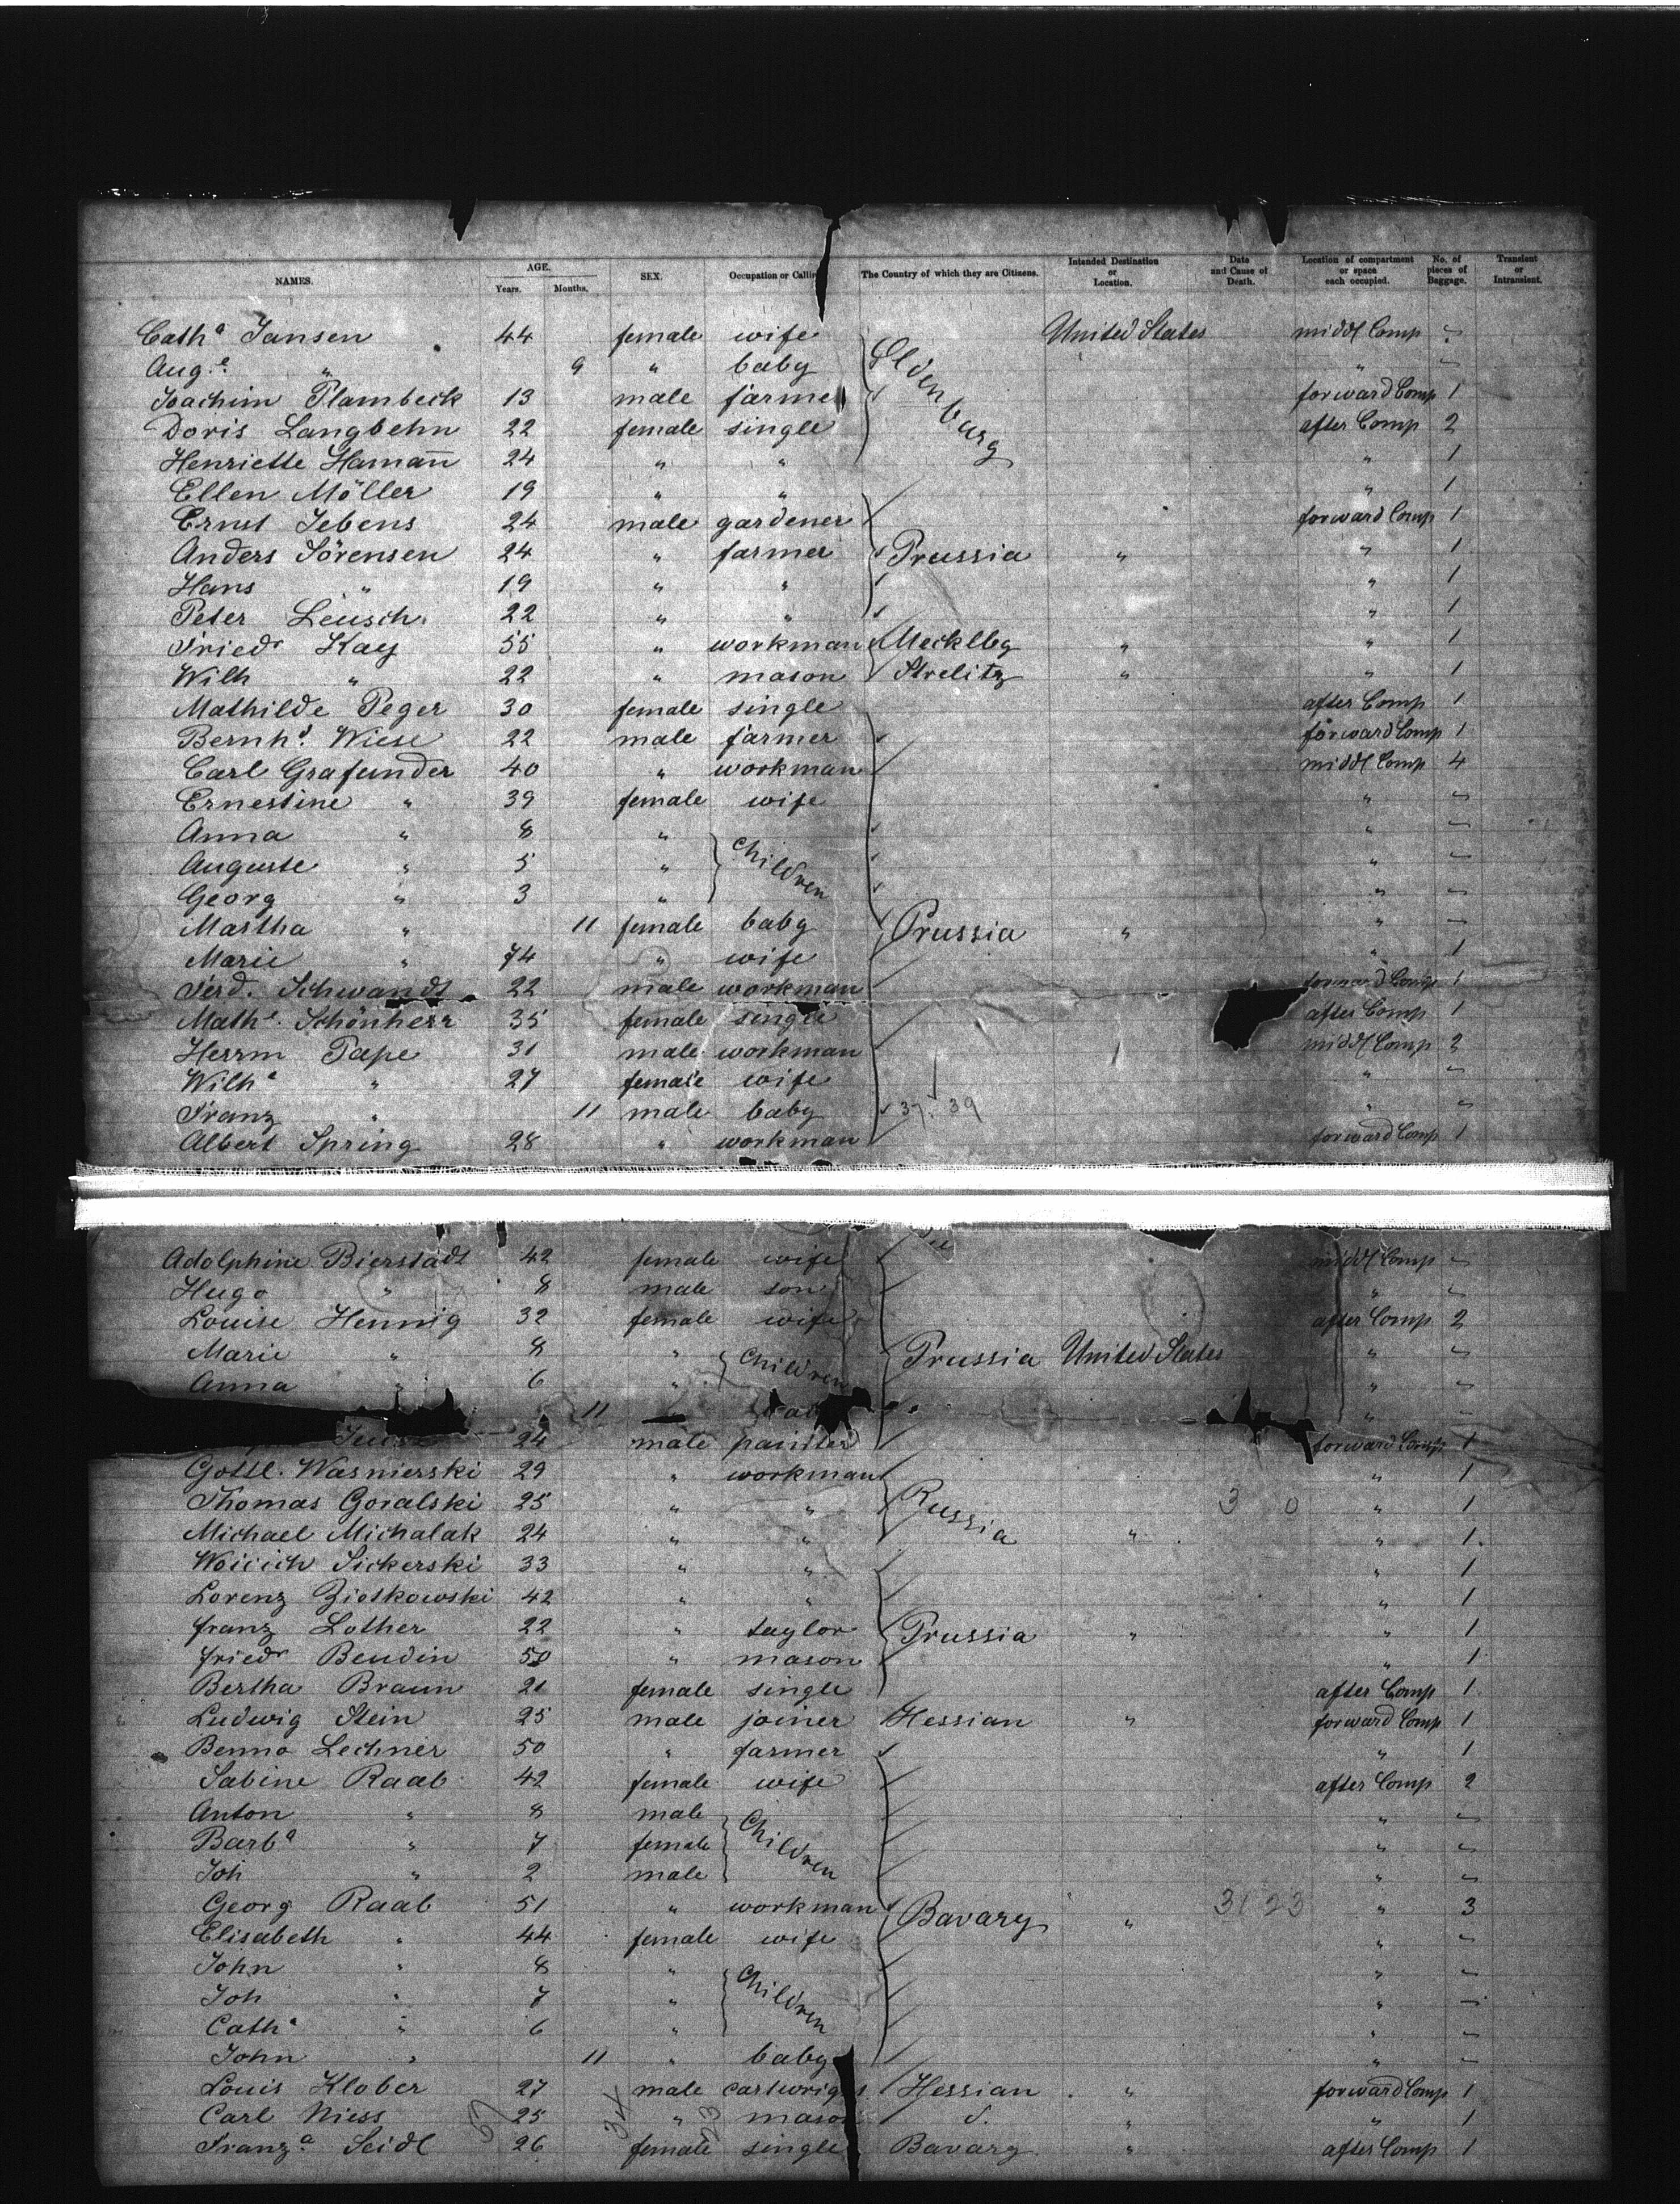 NAMES. AGE. Years. Months. SEX. Occupation or Callin The Country of which they are Citizens. Intended Destination or Location. Date and Cause of Death. Location of compartment or space each occupied. No. of pieces of Baggage. Transient or Intransient.
Cathª Jansen 44 female wife Oldenburg United States middl Comp "
Aug.ᵉ " 9 " baby " "
Joachim Plambeck 13 male farme forward Comp 1
Doris Langbehn 22 female single after Comp 2
Henriette Haman̄ 24 " " " 1
Ellen Möller 19 " " " 1
Ernst Jebens 24 male gardener forward Comp 1
Anders Sörensen 24 " farmer Prussia " " 1
Hans " 19 " " " 1
Peter Leusch. 22 " " " 1
Friedr Kay 55 " workman Mecklbg " " 1
Wilh " 22 " mason Strelitz " " 1
Mathilde Peger 30 female single after Comp 1
Bernhᵈ. Wiese 22 male farmer forward Comp 1
Carl Grafunder 40 " workman middl Comp 4
Ernestine " 39 female wife " "
Anna " 8 " Children " "
Auguste " 5 " " "
Georg " 3 " " "
Martha " 11 female baby Prussia " " "
Marie " 74 " wife " 1
Ferd. Schwandt 22 male workman forward Comp 1
Mathᵉ. Schönherr 35 female single after Comp 1
Herrm Pape 31 male workman middl Comp 2
Wilhᵃ " 27 female wife " "
Franz " 11 male baby 37. 39 " "
Albert Spring 28 " workman forward Comp 1
Adolphine Bierstadt 42 female wife middl Comp "
Hugo " 8 male son " "
Louise Hennig 32 female wife after Comp 2
Marie " 8 " Children Prussia United States " "
Anna " 6 " " "
11 " "
24 male painter forward Comp 1
Gottl. Wasnierski 29 " workman " 1
Thomas Goralski 25 " " Russia 3 0 " 1
Michael Michalak 24 " " " " 1.
Woicich Sickerski 33 " " " 1
Lorenz Ziotkowski 42 " " " 1
franz Lother 22 " taylor Prussia " " 1
friedr Beudin 50 " mason " 1
Bertha Braun 21 female single after Comp 1.
Ludwig Stein 25 male joiner Hessian " forward Comp 1
Benno Lechner 50 " farmer " 1
Sabine Raab 42 female wife after Comp 2
Anton " 8 male Children " "
Barbª " 7 female " "
Joh " 2 male " "
Georg Raab 51 " workman Bavary " 31 23 " 3
Elisabeth " 44 female wife " "
John " 8 " Children " "
Joh " 7 " " "
Cathª " 6 " " "
John " 11 " baby " "
Louis Klober 27 male cartwrig Hessian " forward Comp 1
Carl Niess 25 " mason d. " " 1
Franz.ª Seidl 26 female single Bavary " after Comp 1